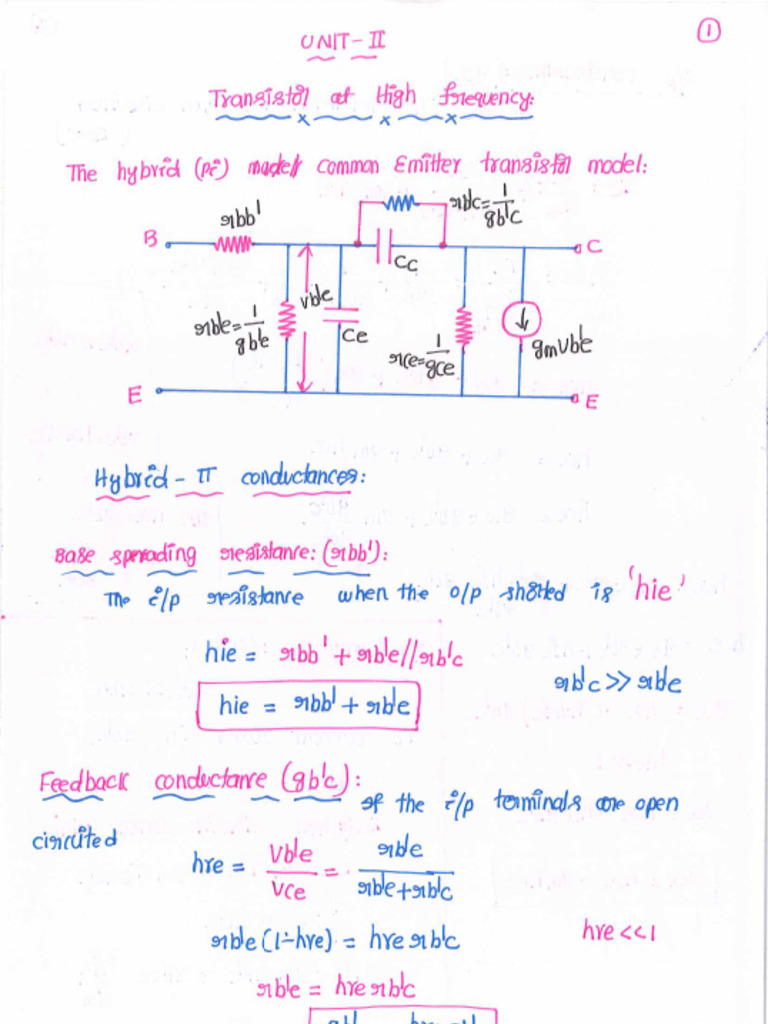 ①
UNIT-II
Transistor at High frequency:
The hybrid (pi) model/ common Emitter transistor model:
rbb'
rb'c = 1/gb'c
B
C
Cc
vb'e
rb'e = 1/gb'e
Ce
rce = 1/gce
gmvb'e
E
E
Hybrid - π conductances:
Base spreading resistance: (rbb'):
The i/p resistance when the o/p shorted is 'hie'
hie = rbb' + rb'e//rb'c
rb'c >> rb'e
hie = rbb' + rb'e
Feedback conductance (gb'c):
If the i/p terminals are open
circuited
hre = Vb'e/Vce = rb'e/(rb'e+rb'c)
rb'e (1-hre) = hre rb'c
hre <<1
rb'e = hre rb'c